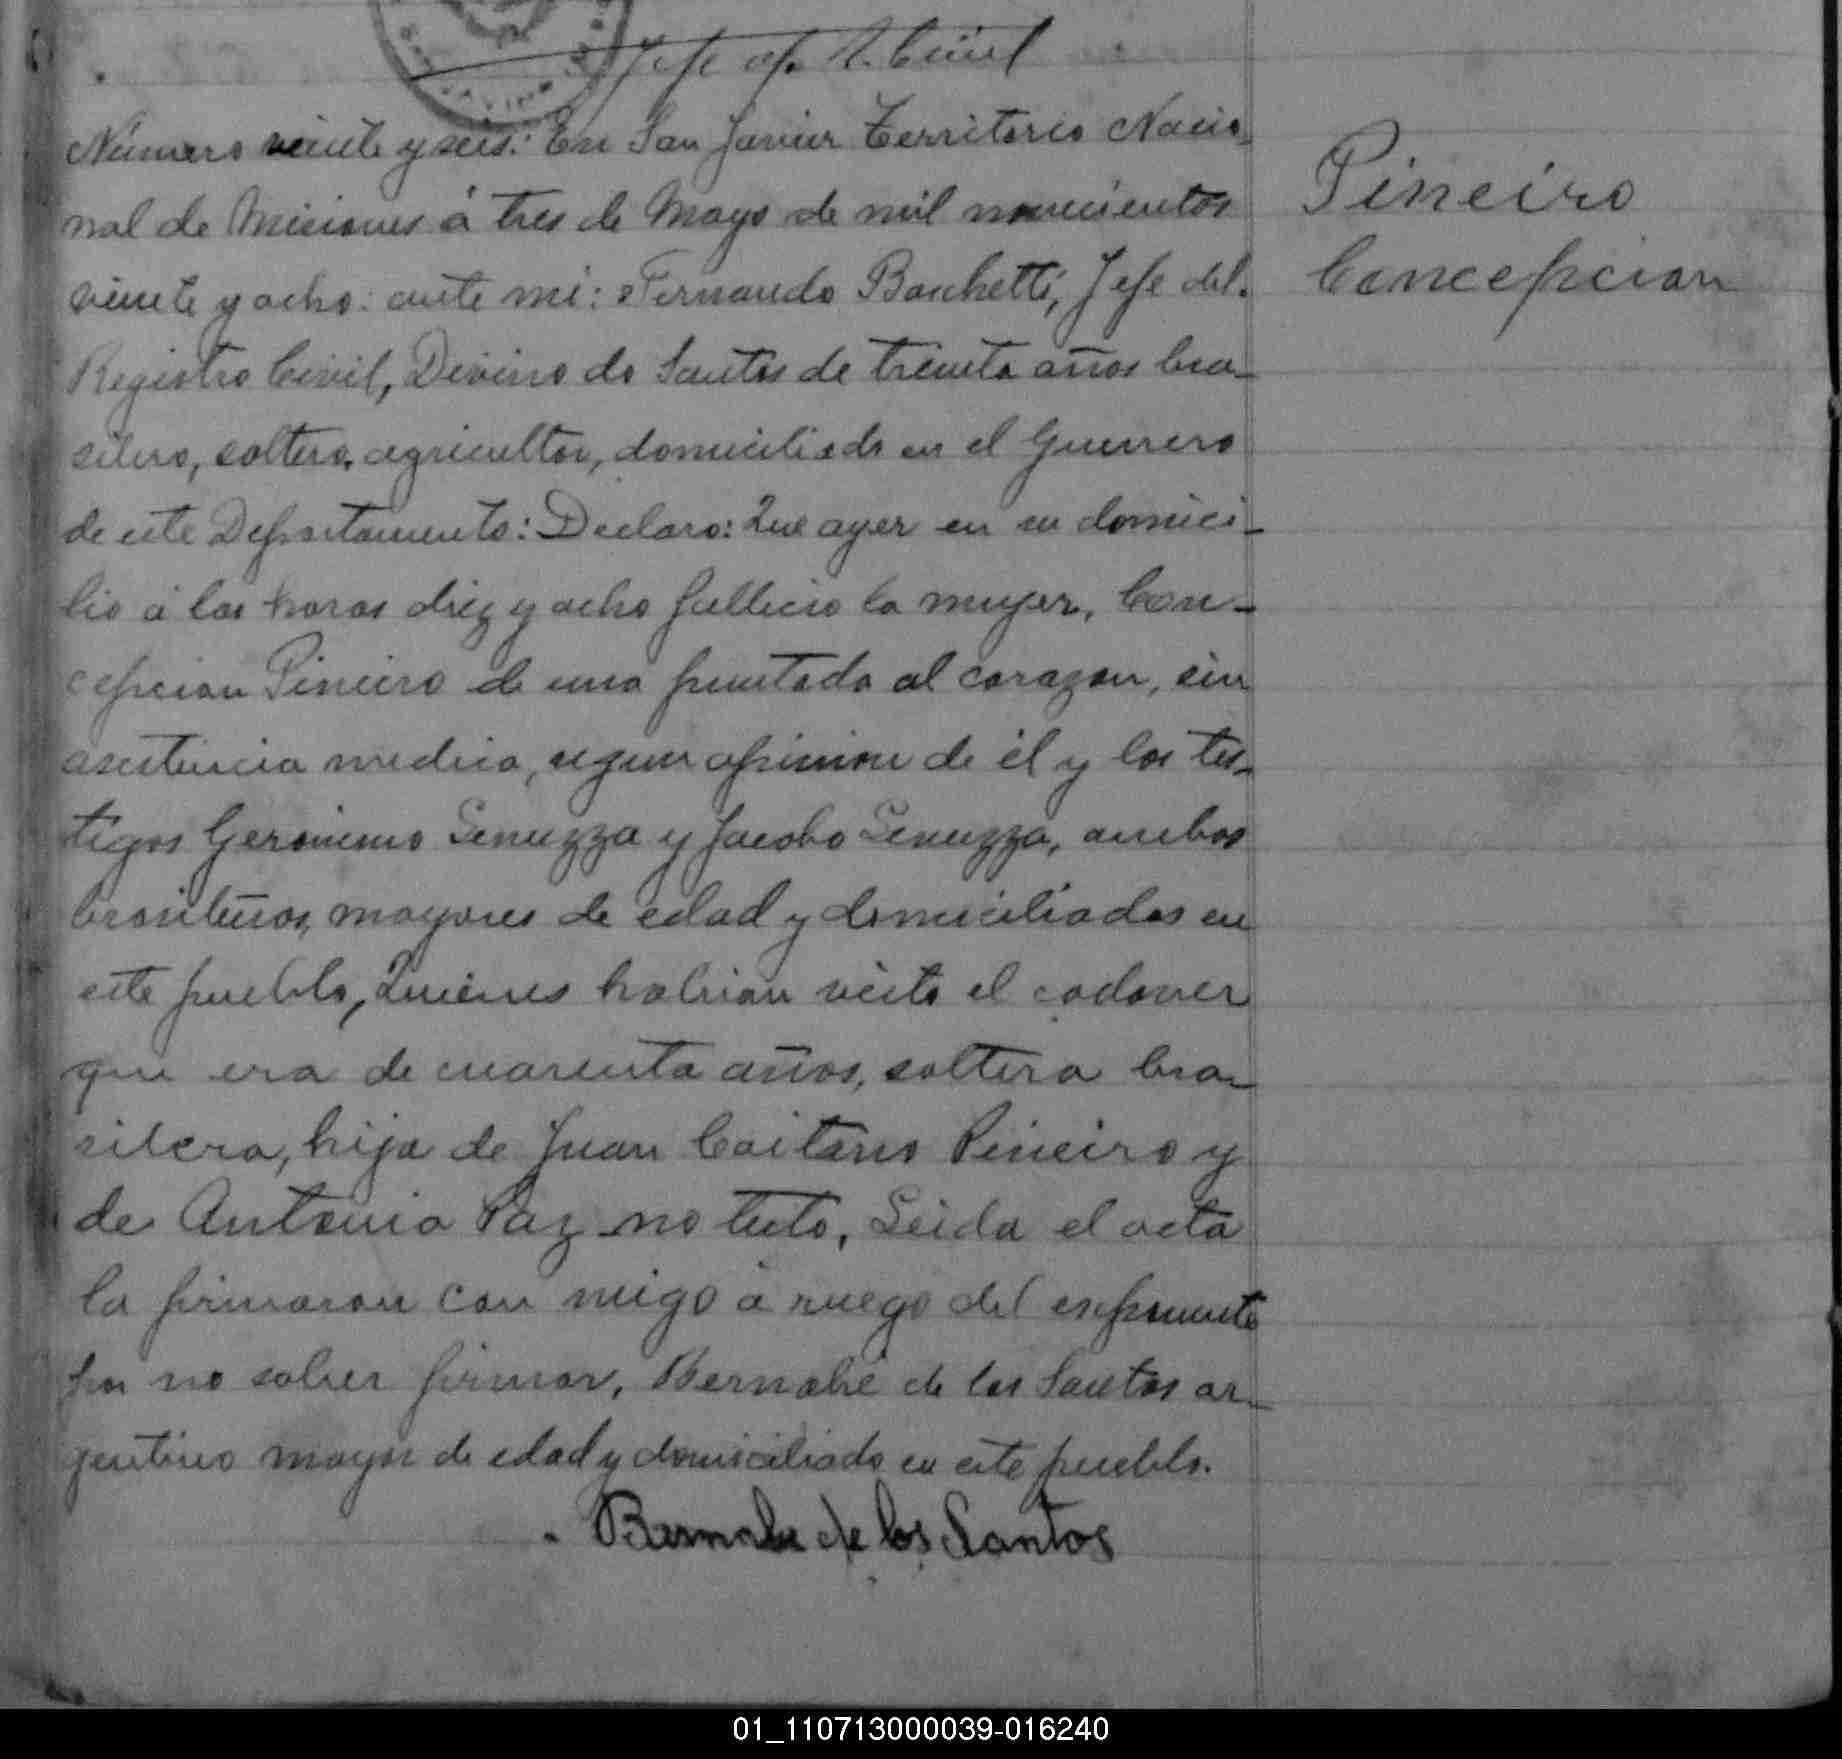 Jefe of. R. Civil
Número veinte y seis: En San Javier Territorio Nacio-
nal de Misiones á tres de Mayo de mil novecientos
veinte y ocho: ante mi: Fernando Bacchetti, Jefe del
Registro Civil, Divino do Santos de treinta años bra-
silero, soltero, agricultor, domiciliado en el Guerrero
de este Departamento: Declaro: Que ayer en su domici-
lio á las horas diez y ocho fallecio la mujer, Con-
cepcion Pineiro de una puntada al corazon, sin
asistencia medica, segun opinion de él y los tes-
tigos Geronimo y Jacobo ambos
brasileños, mayores de edad y domiciliados en
este pueblo, Quienes habian visto el cadaver
que era de cuarenta años, soltera bra-
silera, hija de Juan Caitano Pineiro y
de Antonia Paz no testo, Leida el acta
la firmaron con migo a ruego del exponente
por no saber firmar, Bernabé de los Santos ar-
gentino mayor de edad y domiciliado en este pueblo.
Bernabe de los Santos
Pineiro
Concepcion
01_110713000039-016240